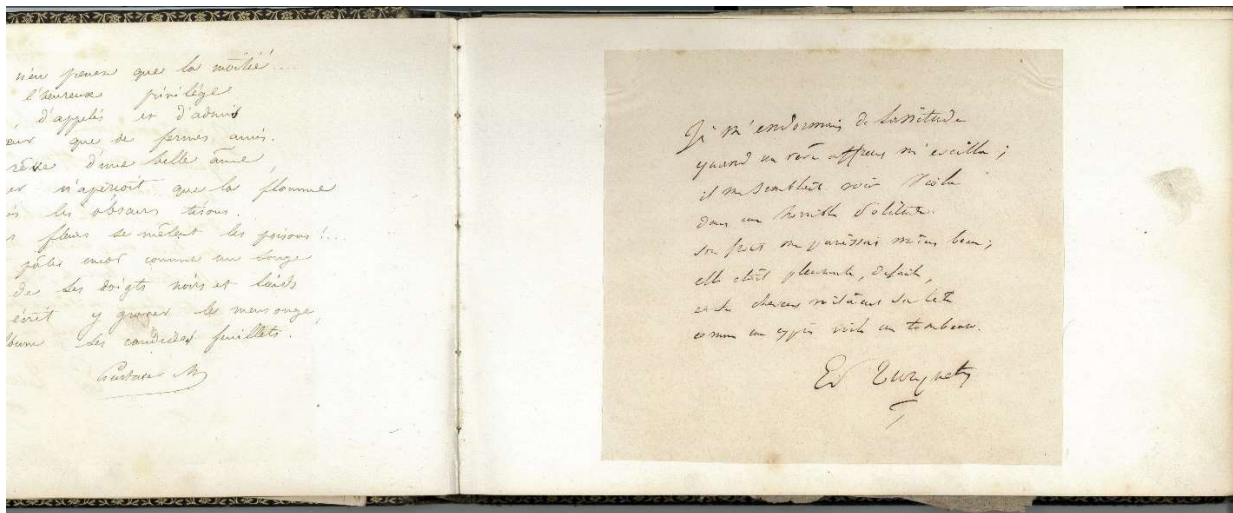 n'en penser que la moitié...
l'heureux privilège
d'appelés et d'admis
que de fermes amis.
d'une belle âme
n'aperçoit que la flamme
les obscurs tisons.
fleurs se mêlent les poisons!...
encor comme un songe
de ses doigts noirs et laids
écrit y graver le mensonge,
ses candides feuillets.
Gustave M
Je m'endormais de lassitude
quand un rêve affreux m'éveilla;
il me semblait voir
dans une horrible solitude.
son front me paraissait moins beau;
elle était pleurante, défaite,
et de cheveux sa tête
comme un cyprès voile un tombeau.
Ed Turquety